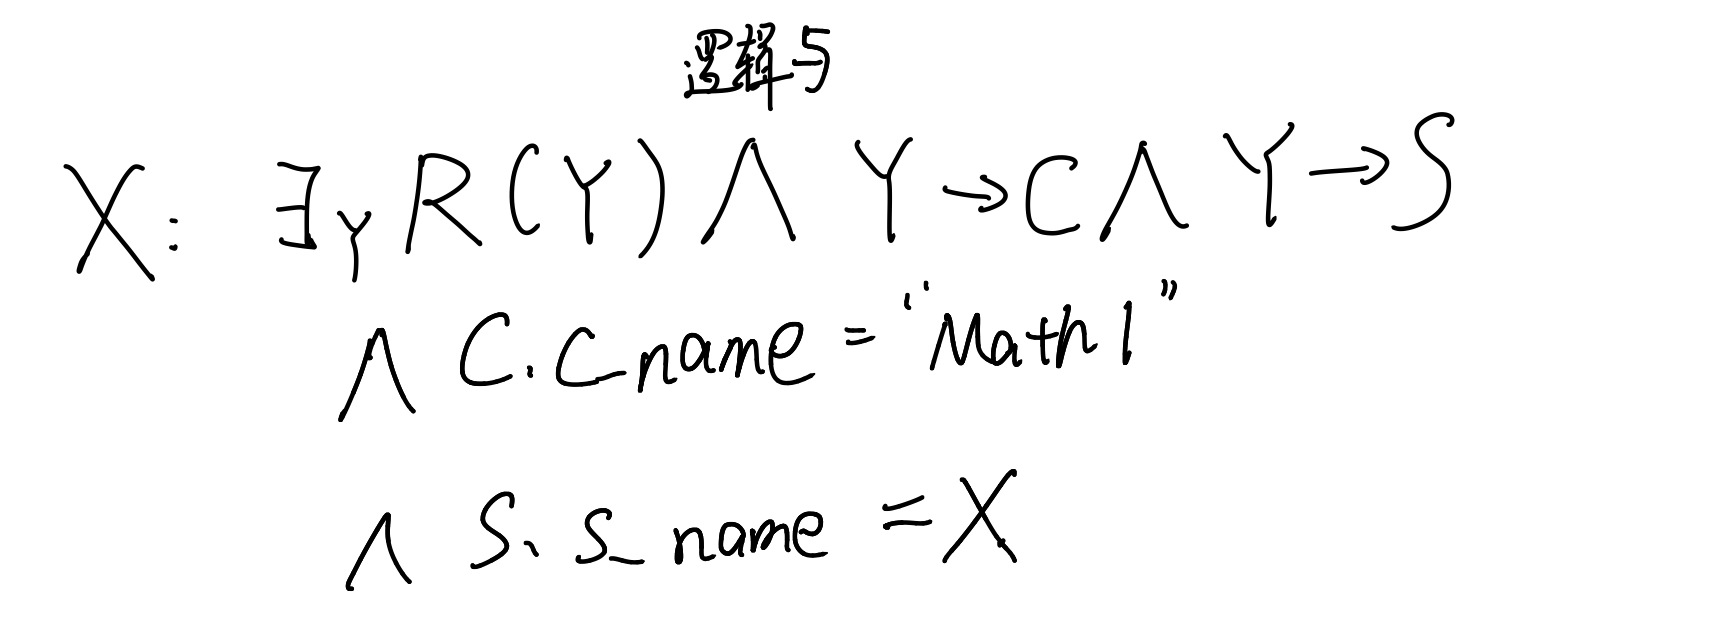 逻辑与
X: ∃Y R(Y) ∧ Y → C ∧ Y → S
∧ C.C_name = "Math1"
∧ S.S_name = X